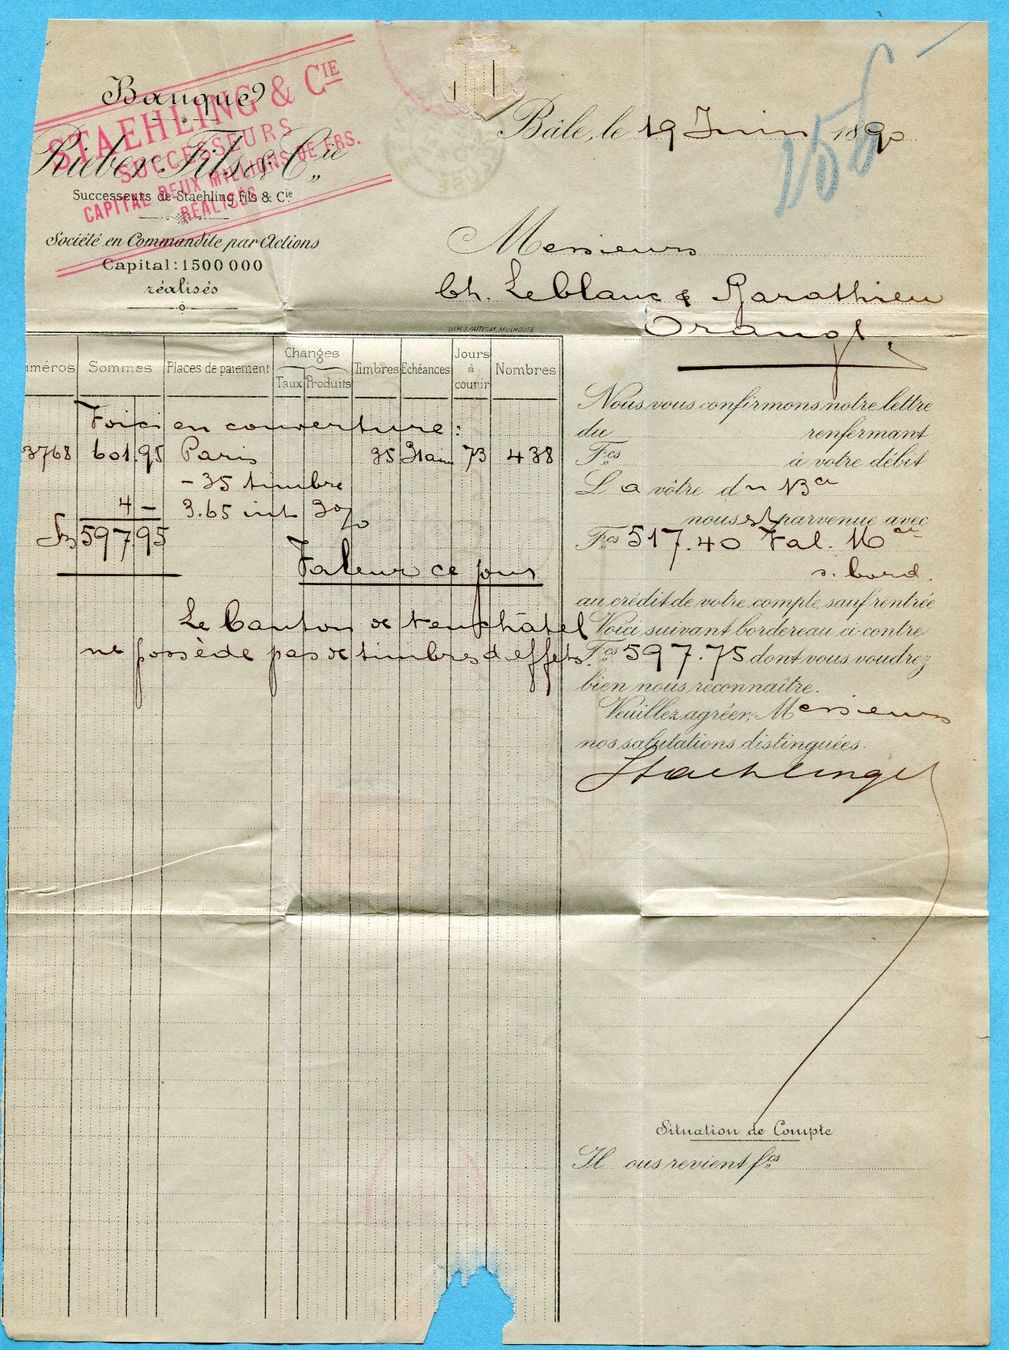 Banque
Rieber Fils & Cie
Successeurs de Staehling fils & Cie
Société en Commandite par Actions
Capital: 1500 000
réalisés
STAEHLING & CIE
SUCCESSEURS
CAPITAL DEUX MILLIONS DE FRS.
RÉALISÉS
Bâle, le 19 Juin 1890
Messieurs
Ch. Leblanc &
Orange.
LITH. J. MULHOUSE
uméros Sommes Places de paiement Changes Taux Produits Timbres Echéances Jours à courir Nombres
Voici en couverture:
3768 601.95 Paris 35 73 438
- 35 timbre
4 - 3.65 int 3%
597.95
Valeur ce jour
Le Canton de Neuchâtel
ne possède pas de timbres d'effets.
Nous vous confirmons notre lettre
du renfermant
Fcs à votre débit
La vôtre du 13 ct
nous est parvenue avec
Fcs 517.40 Val. 16 ct
s. bord.
au crédit de votre compte, sauf rentrée
Voici suivant bordereau ci contre
Fcs 597.75 dont vous voudrez
bien nous reconnaître.
Veuillez agréer, Messieurs
nos salutations distinguées.
Situation de Compte
Il ous revient fcs